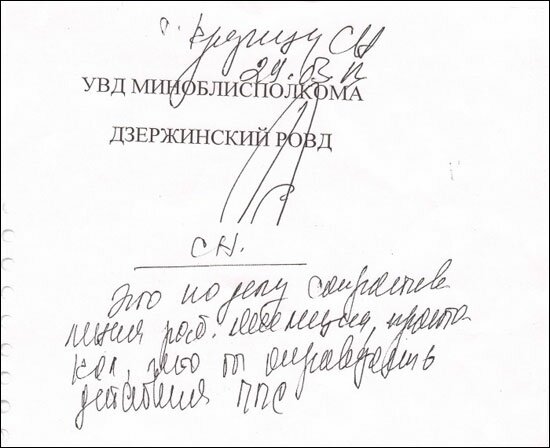 г. Крупицу СН
29.03
УВД МИНОБЛИСПОЛКОМА
ДЗЕРЖИНСКИЙ РОВД
СН.
Это по делу сопротив
ления раб. милиции, просто
кол, что бы оправдать
действия ППС